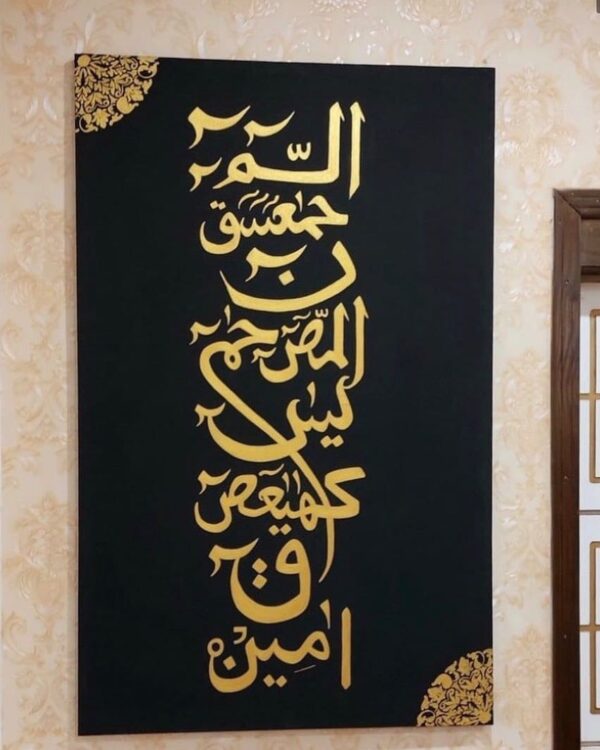 الٓمّٓ
حمٓعٓسٓقٓ
نٓ
الٓمّٓصٓ حٰمٓ
يٰسٓ
كٓهٰيٰعٓصٓ
قٓ
اٰمِيْن